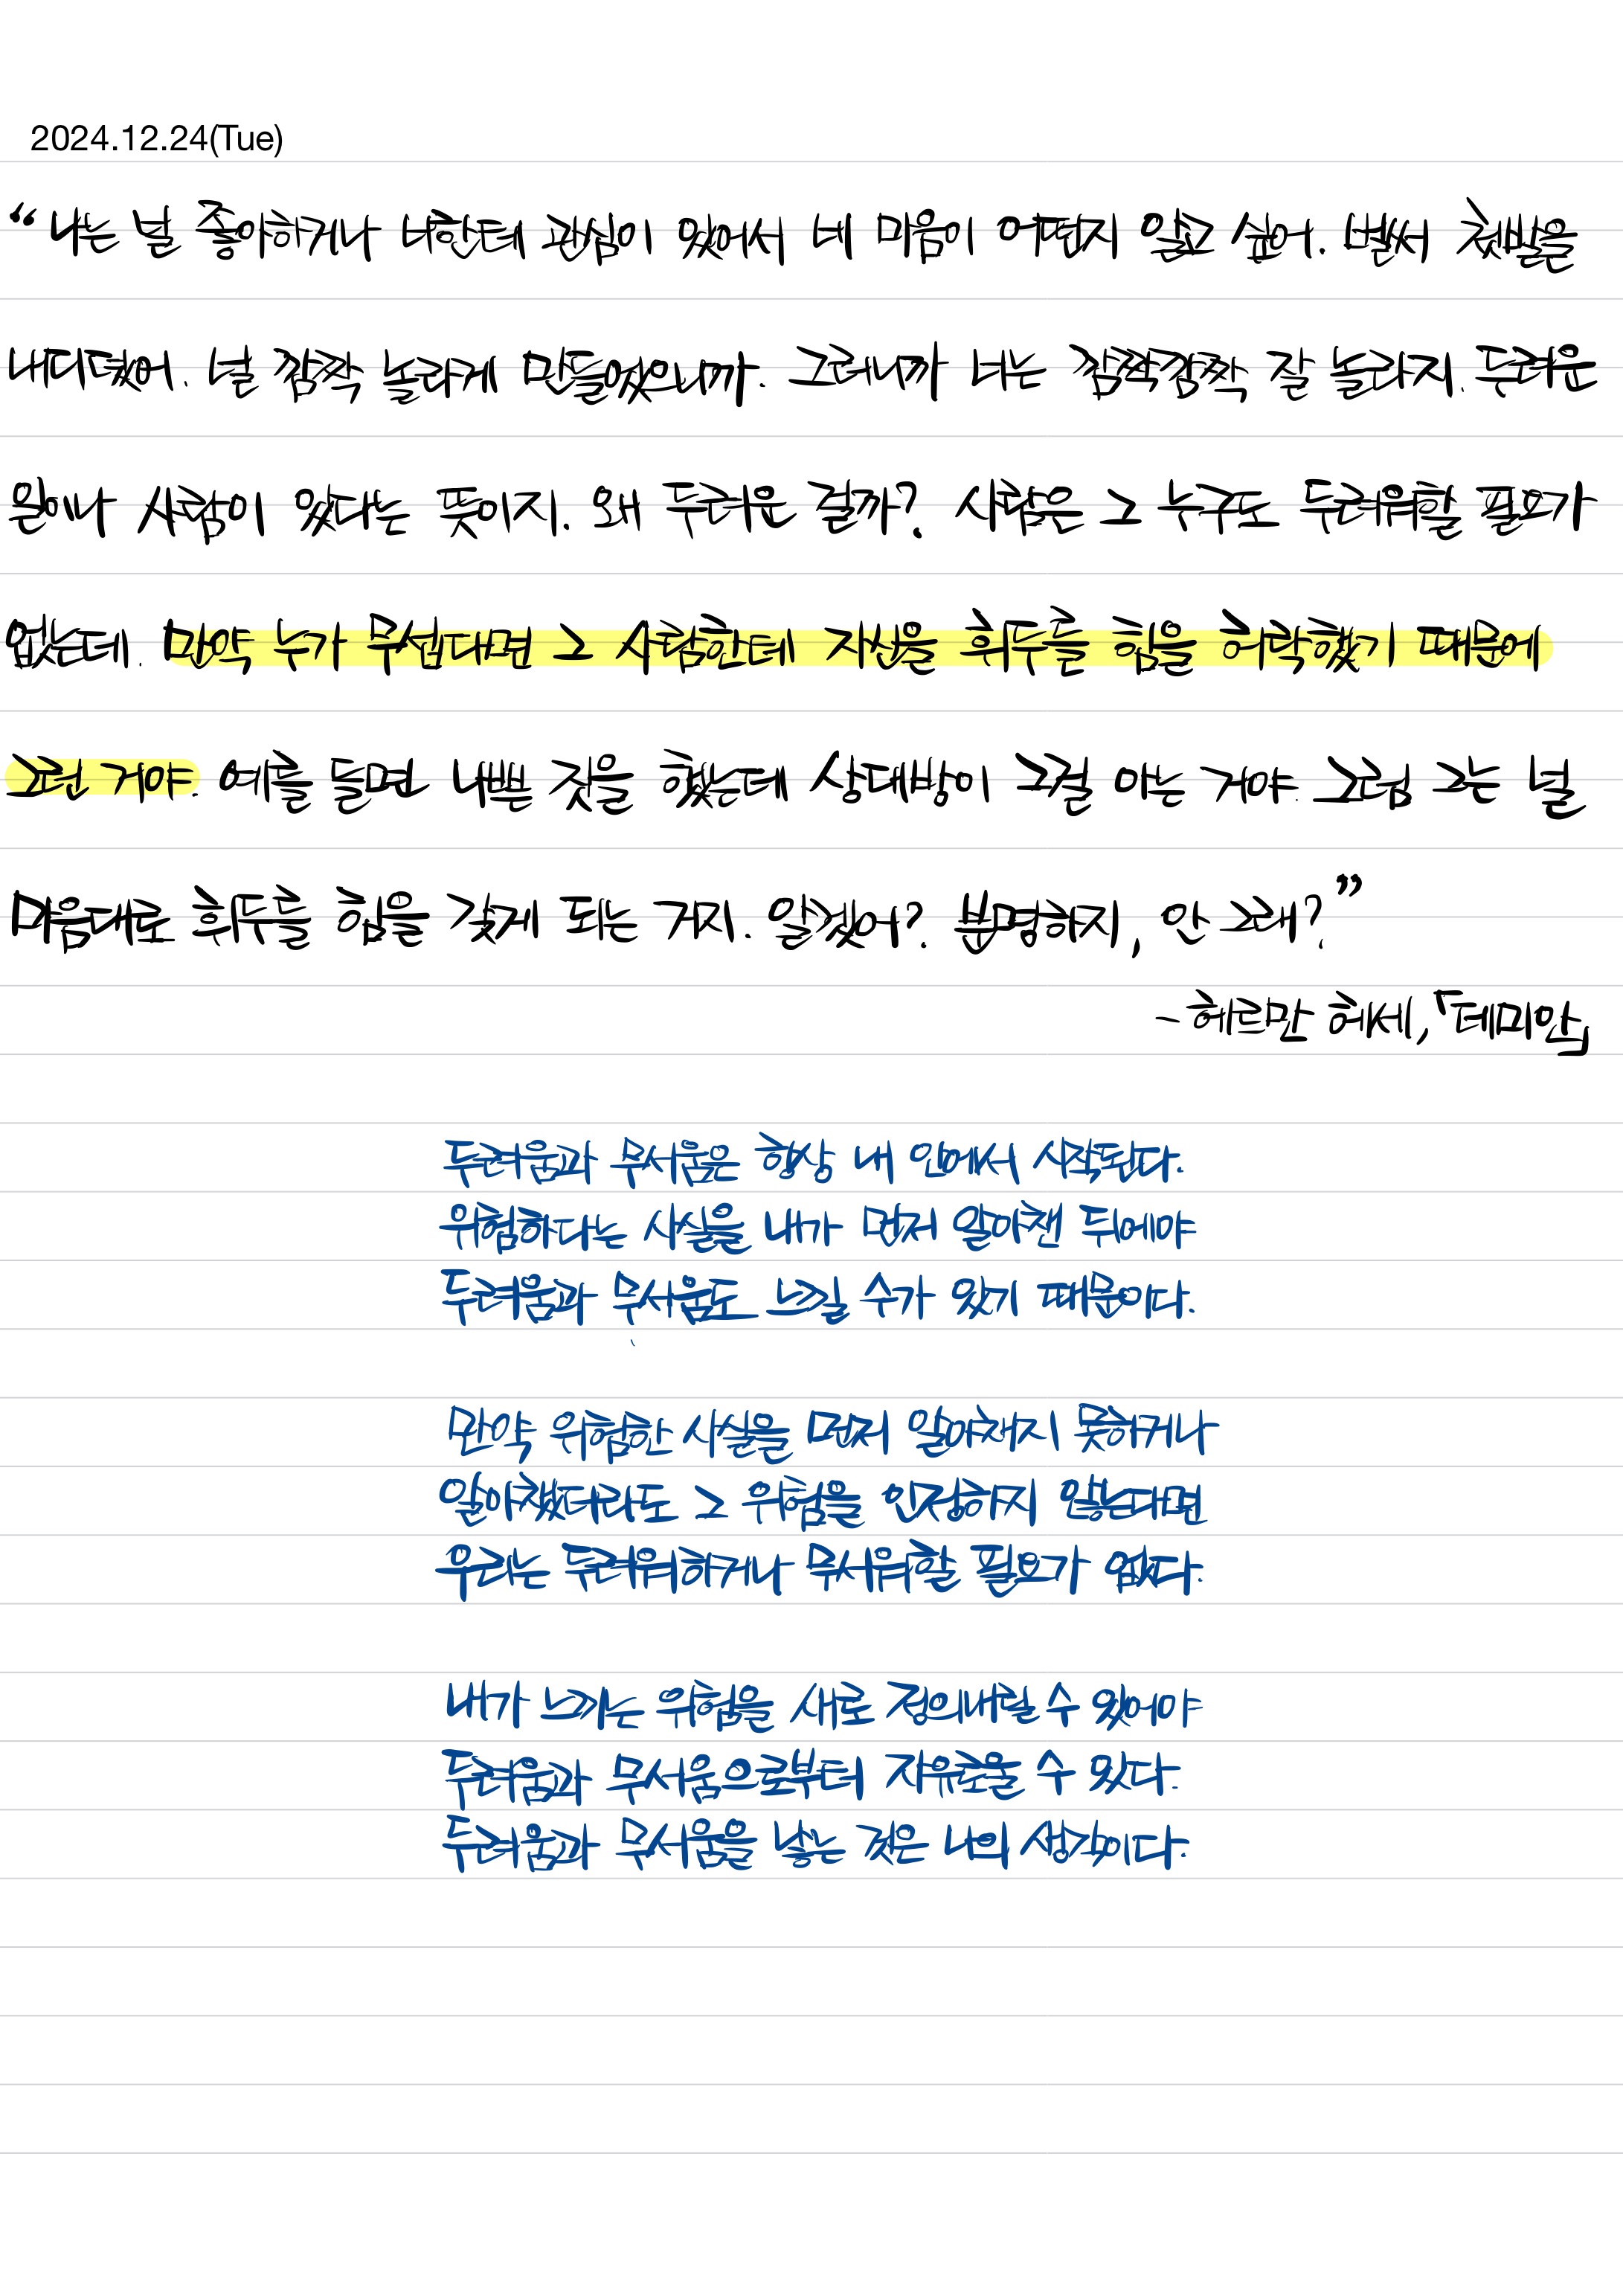 2024.12.24(Tue)
“나는 널 좋아하거나 너한테 관심이 있어서 네 마음이 어떤지 알고 싶어. 벌써 첫발을
내디뎠어. 널 깜짝 놀라게 만들었으니까. 그러니까 너는 깜짝깜짝 잘 놀라지. 두려운
일이나 사람이 있다는 뜻이지. 왜 두려운 걸까? 사람은 그 누구도 두려워할 필요가
없는데. 만약 누가 무섭다면 그 사람한테 자신을 휘두를 힘을 허락했기 때문에
그런 거야. 예를 들면 나쁜 짓을 했는데 상대방이 그걸 아는 거야. 그럼 그는 널
마음대로 휘두를 힘을 갖게 되는 거지. 알겠어? 분명하지, 안 그래?”
-헤르만 헤세,「데미안」
두려움과 무서움은 항상 내 안에서 시작된다.
위험하다는 사실을 내가 먼저 알아챈 뒤에야
두려움과 무서움도 느낄 수가 있기 때문이다.
만약 위험한 사실을 먼저 알아채지 못하거나
알아챘더라도 그 위험을 인정하지 않는다면
우리는 두려워하거나 무서워할 필요가 없다.
내가 느끼는 위험을 새로 정의내릴 수 있어야
두려움과 무서움으로부터 자유로울 수 있다.
두려움과 무서움을 낳는 것은 나의 생각이다.